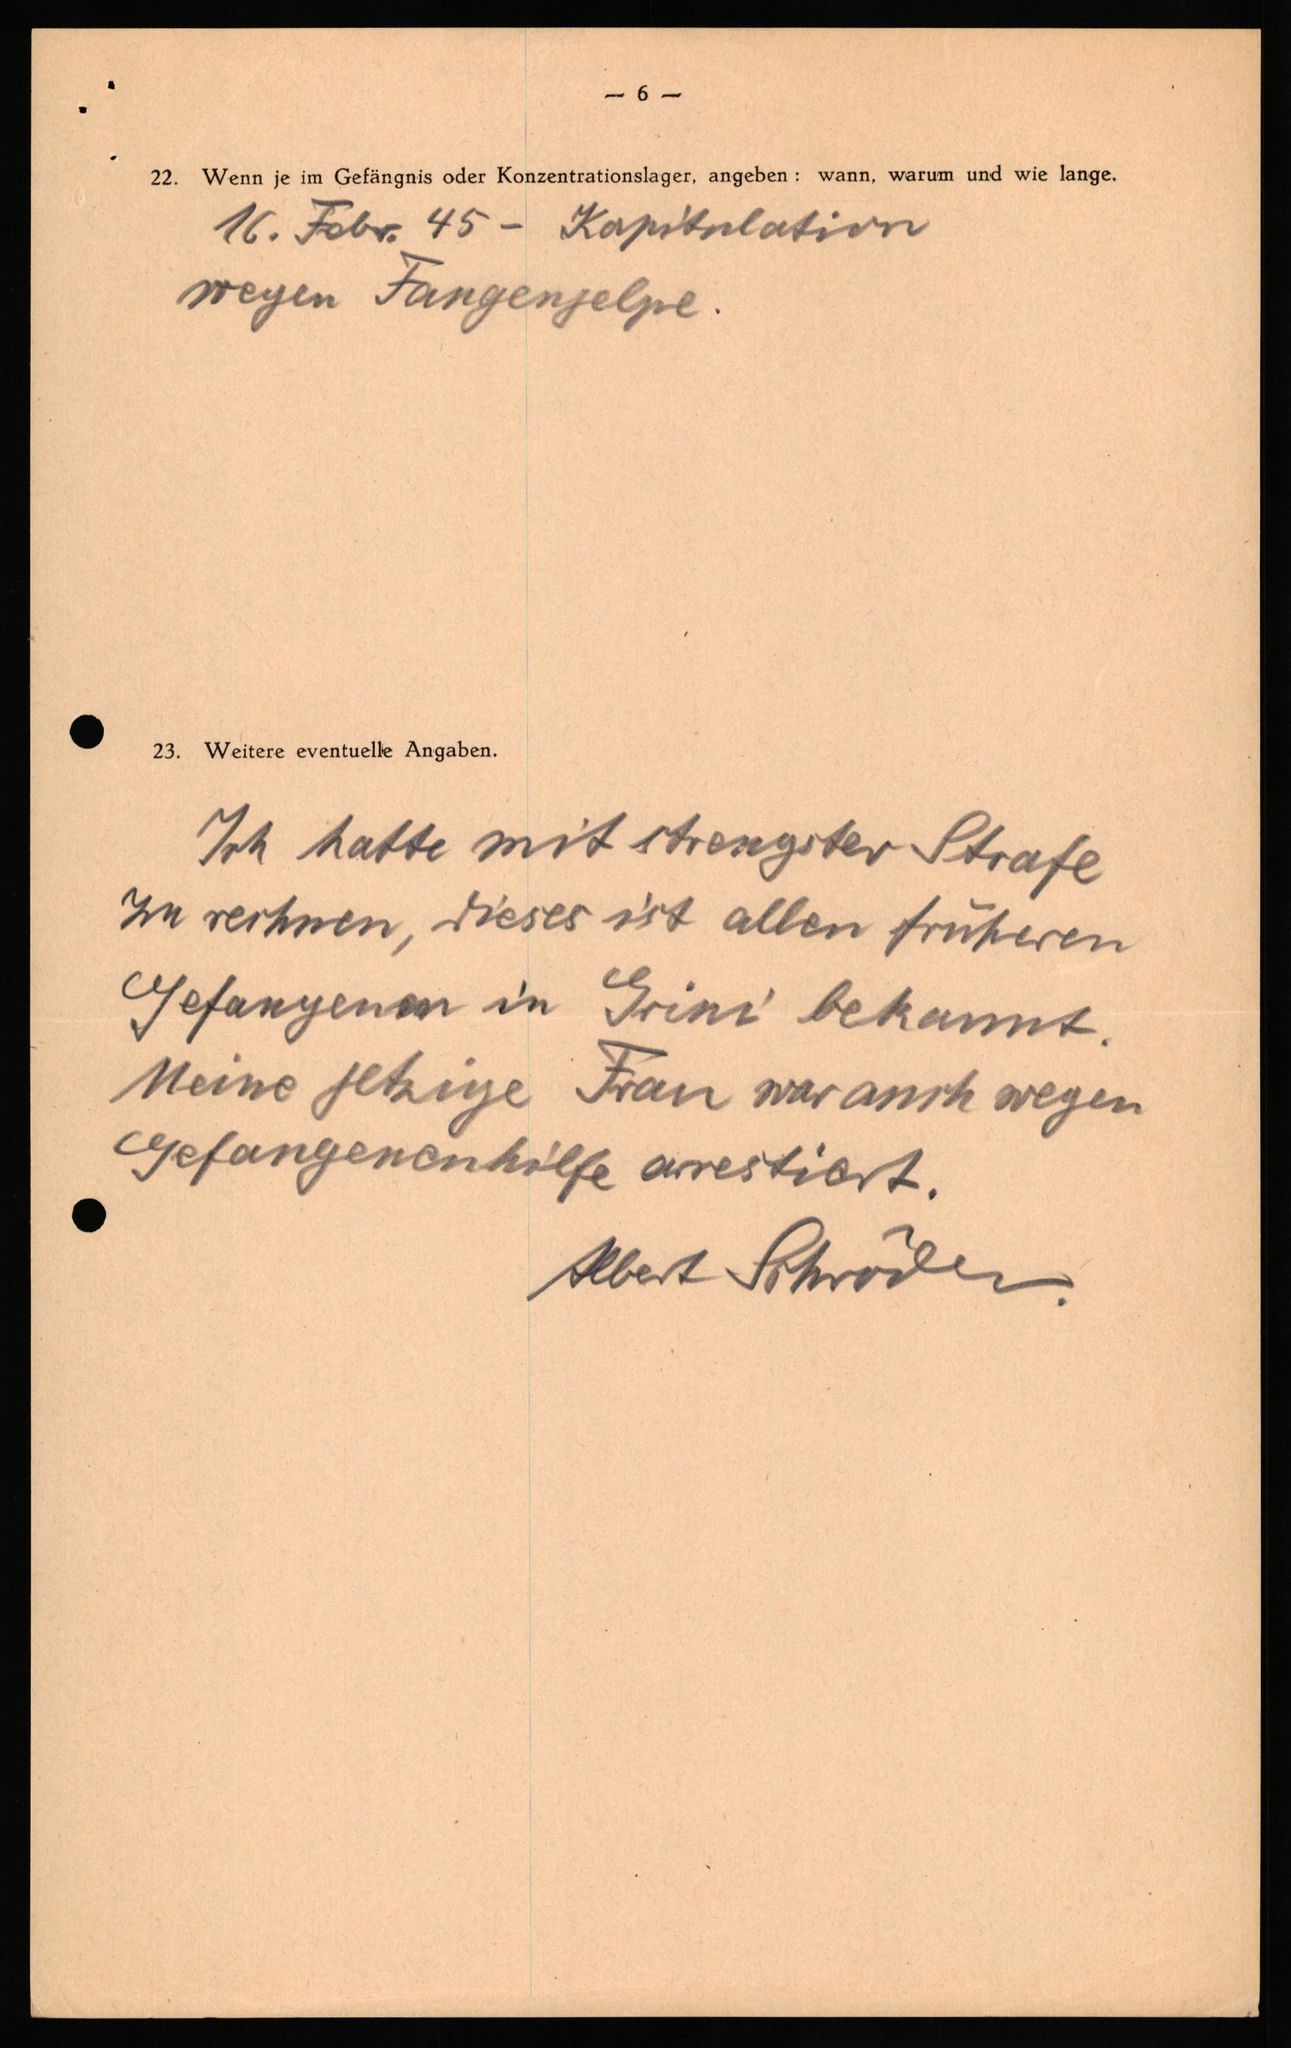 — 6 —
22. Wenn je im Gefängnis oder Konzentrationslager, angeben: wann, warum und wie lange.
16. Febr. 45 - Kapitulation
wegen Fangenhelpe.
23. Weitere eventuelle Angaben.
Ich hatte mit strengster Strafe
zu rechnen, dieses ist allen früheren
Gefangenen in Grini bekannt.
Meine jetzige Frau war auch wegen
Gefangenenhilfe arrestiert.
Albert Schröder.